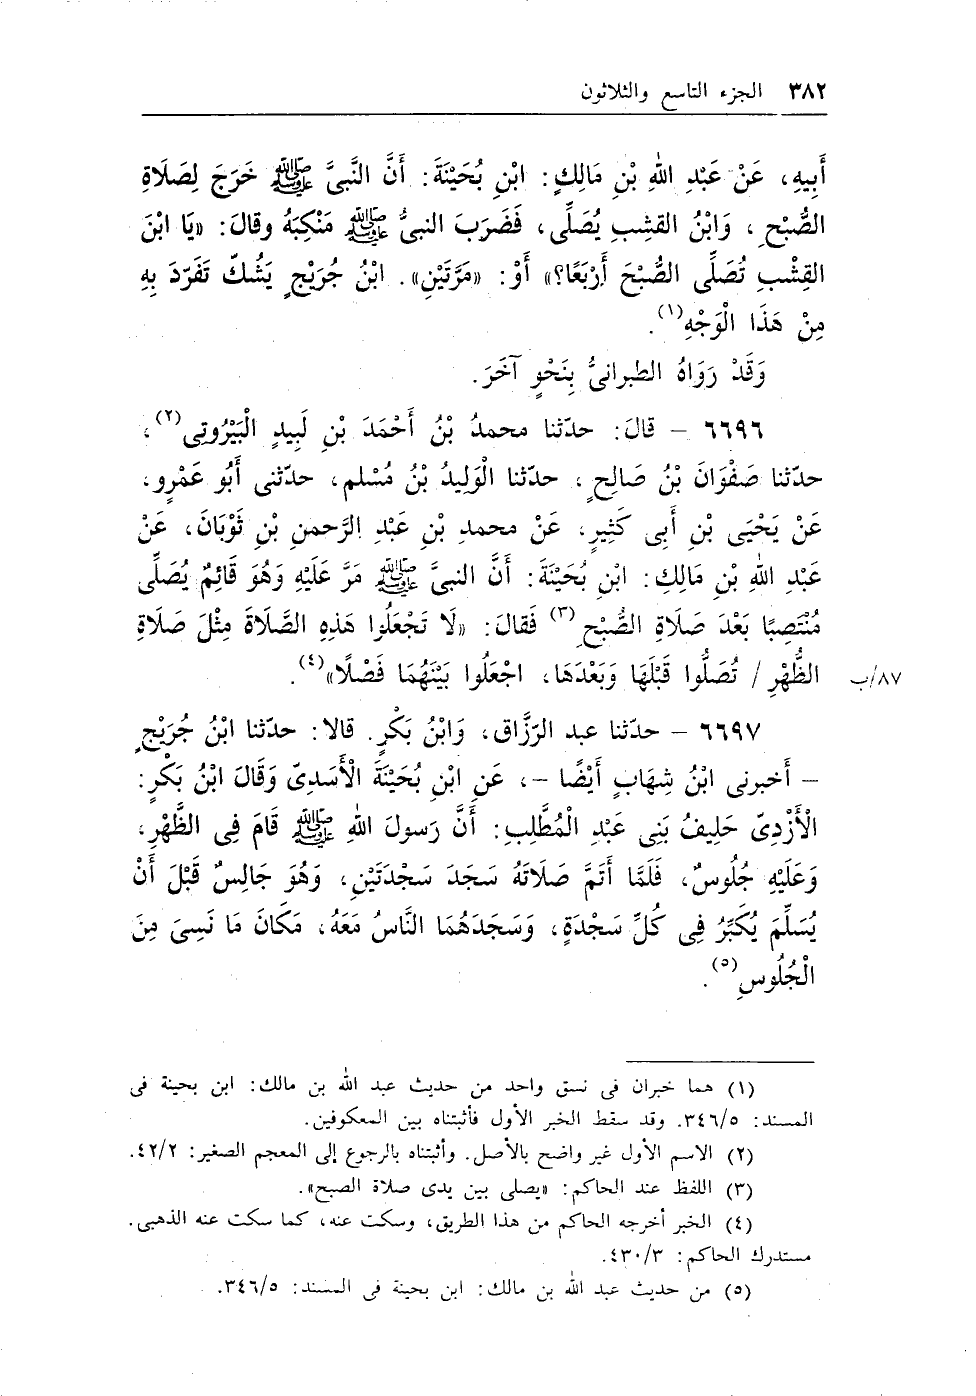 ٣٨٢ الجزء التاسع والثلاثون
أَبِيهِ، عَنْ عَبْدِ اللهِ بْنِ مَالِكٍ: ابْنِ بُحَيْنَةَ: أَنَّ النَّبىَّ ﷺ خَرَجَ لِصَلَاةِ
الصُّبْحِ، وَابْنُ القشِبِ يُصَلِّى، فَضَرَبَ النبىُّ ﷺ مَنْكِبَهُ وقالَ: «يَا ابْنَ
القِشْبِ تُصَلِّى الصُّبْحَ أَرْبَعًا؟» أَوْ: «مَرَّتَيْنِ». ابْنُ جُرَيْجٍ يَشُكّ تَفَرّدَ بِهِ
مِنْ هَذَا الْوَجْهِ(١).
وَقَدْ رَوَاهُ الطبرانىُّ بِنَحْوٍ آخَرَ.
٦٦٩٦ – قالَ: حدّثنا محمدُ بْنُ أَحْمَدَ بْنِ لَبِيدٍ الْبَيْرُوتِى(٢)،
حدّثنا صَفْوَانَ بْنُ صَالِحٍ، حدّثنا الْوَلِيدُ بْنُ مُسْلم، حدّثنى أَبُو عَمْرٍو،
عَنْ يَحْيَى بْنِ أَبِى كَثِيرٍ، عَنْ محمدِ بْنِ عَبْدِ الرَّحمنِ بْنِ ثَوْبَانَ، عَنْ
عَبْدِ اللهِ بْنِ مَالِكِ: ابْنِ بُحَيْنَةَ: أَنَّ النبىَّ ﷺ مَرَّ عَلَيْهِ وَهُوَ قَائِمٌ يُصَلِّى
مُنْتَصِبًا بَعْدَ صَلَاةِ الصُّبْحِ(٣) فَقالَ: «لَا تَجْعَلُوا هَذِهِ الصَّلَاةَ مِثْلَ صَلَاةِ
الظُّهْرِ / تُصَلُّوا قَبْلَهَا وَبَعْدَهَا، اجْعَلُوا بَيْنَهُمَا فَصْلًا»(٤). ٨٧/ب
٦٦٩٧ – حدّثنا عبد الرّزَّاق، وَابْنُ بَكْرٍ. قالا: حدّثنا ابْنُ جُرَيْجٍ
– أَخبرنى ابْنُ شِهَابٍ أَيْضًا –، عَنِ ابْنِ بُحَيْنَةَ الْأَسَدِىّ وَقَالَ ابْنُ بَكْرٍ:
الْأَزْدِىّ حَلِيفُ بَنِى عَبْدِ الْمُطَّلِبِ: أَنَّ رَسولَ اللهِ ﷺ قَامَ فِى الظُّهْرِ،
وَعَلَيْهِ جُلُوسٌ، فَلَمَّا أَتَمَّ صَلَاتَهُ سَجَدَ سَجْدَتَيْنِ، وَهُوَ جَالِسٌ قَبْلَ أَنْ
يُسَلِّمَ يُكَبِّرُ فِى كُلِّ سَجْدَةٍ، وَسَجَدَهُمَا النَّاسُ مَعَهُ، مَكَانَ مَا نَسِىَ مِنَ
الْجُلُوسِ(٥).
(١) هما خبران فى نسق واحد من حديث عبد الله بن مالك: ابن بحينة فى
المسند: ٣٤٦/٥. وقد سقط الخبر الأول فأثبتناه بين المعكوفين.
(٢) الاسم الأول غير واضح بالأصل. وأثبتناه بالرجوع إلى المعجم الصغير: ٤٢/٢.
(٣) اللفظ عند الحاكم: «يصلى بين يدى صلاة الصبح».
(٤) الخبر أخرجه الحاكم من هذا الطريق، وسكت عنه، كما سكت عنه الذهبى.
مستدرك الحاكم: ٤٣٠/٣.
(٥) من حديث عبد الله بن مالك: ابن بحينة فى المسند: ٣٤٦/٥.